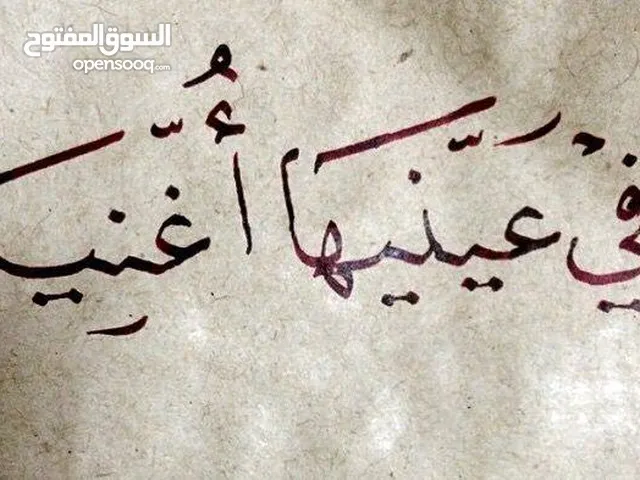 السوق المفتوح
opensooq.com
في عينيها أُغنيـ